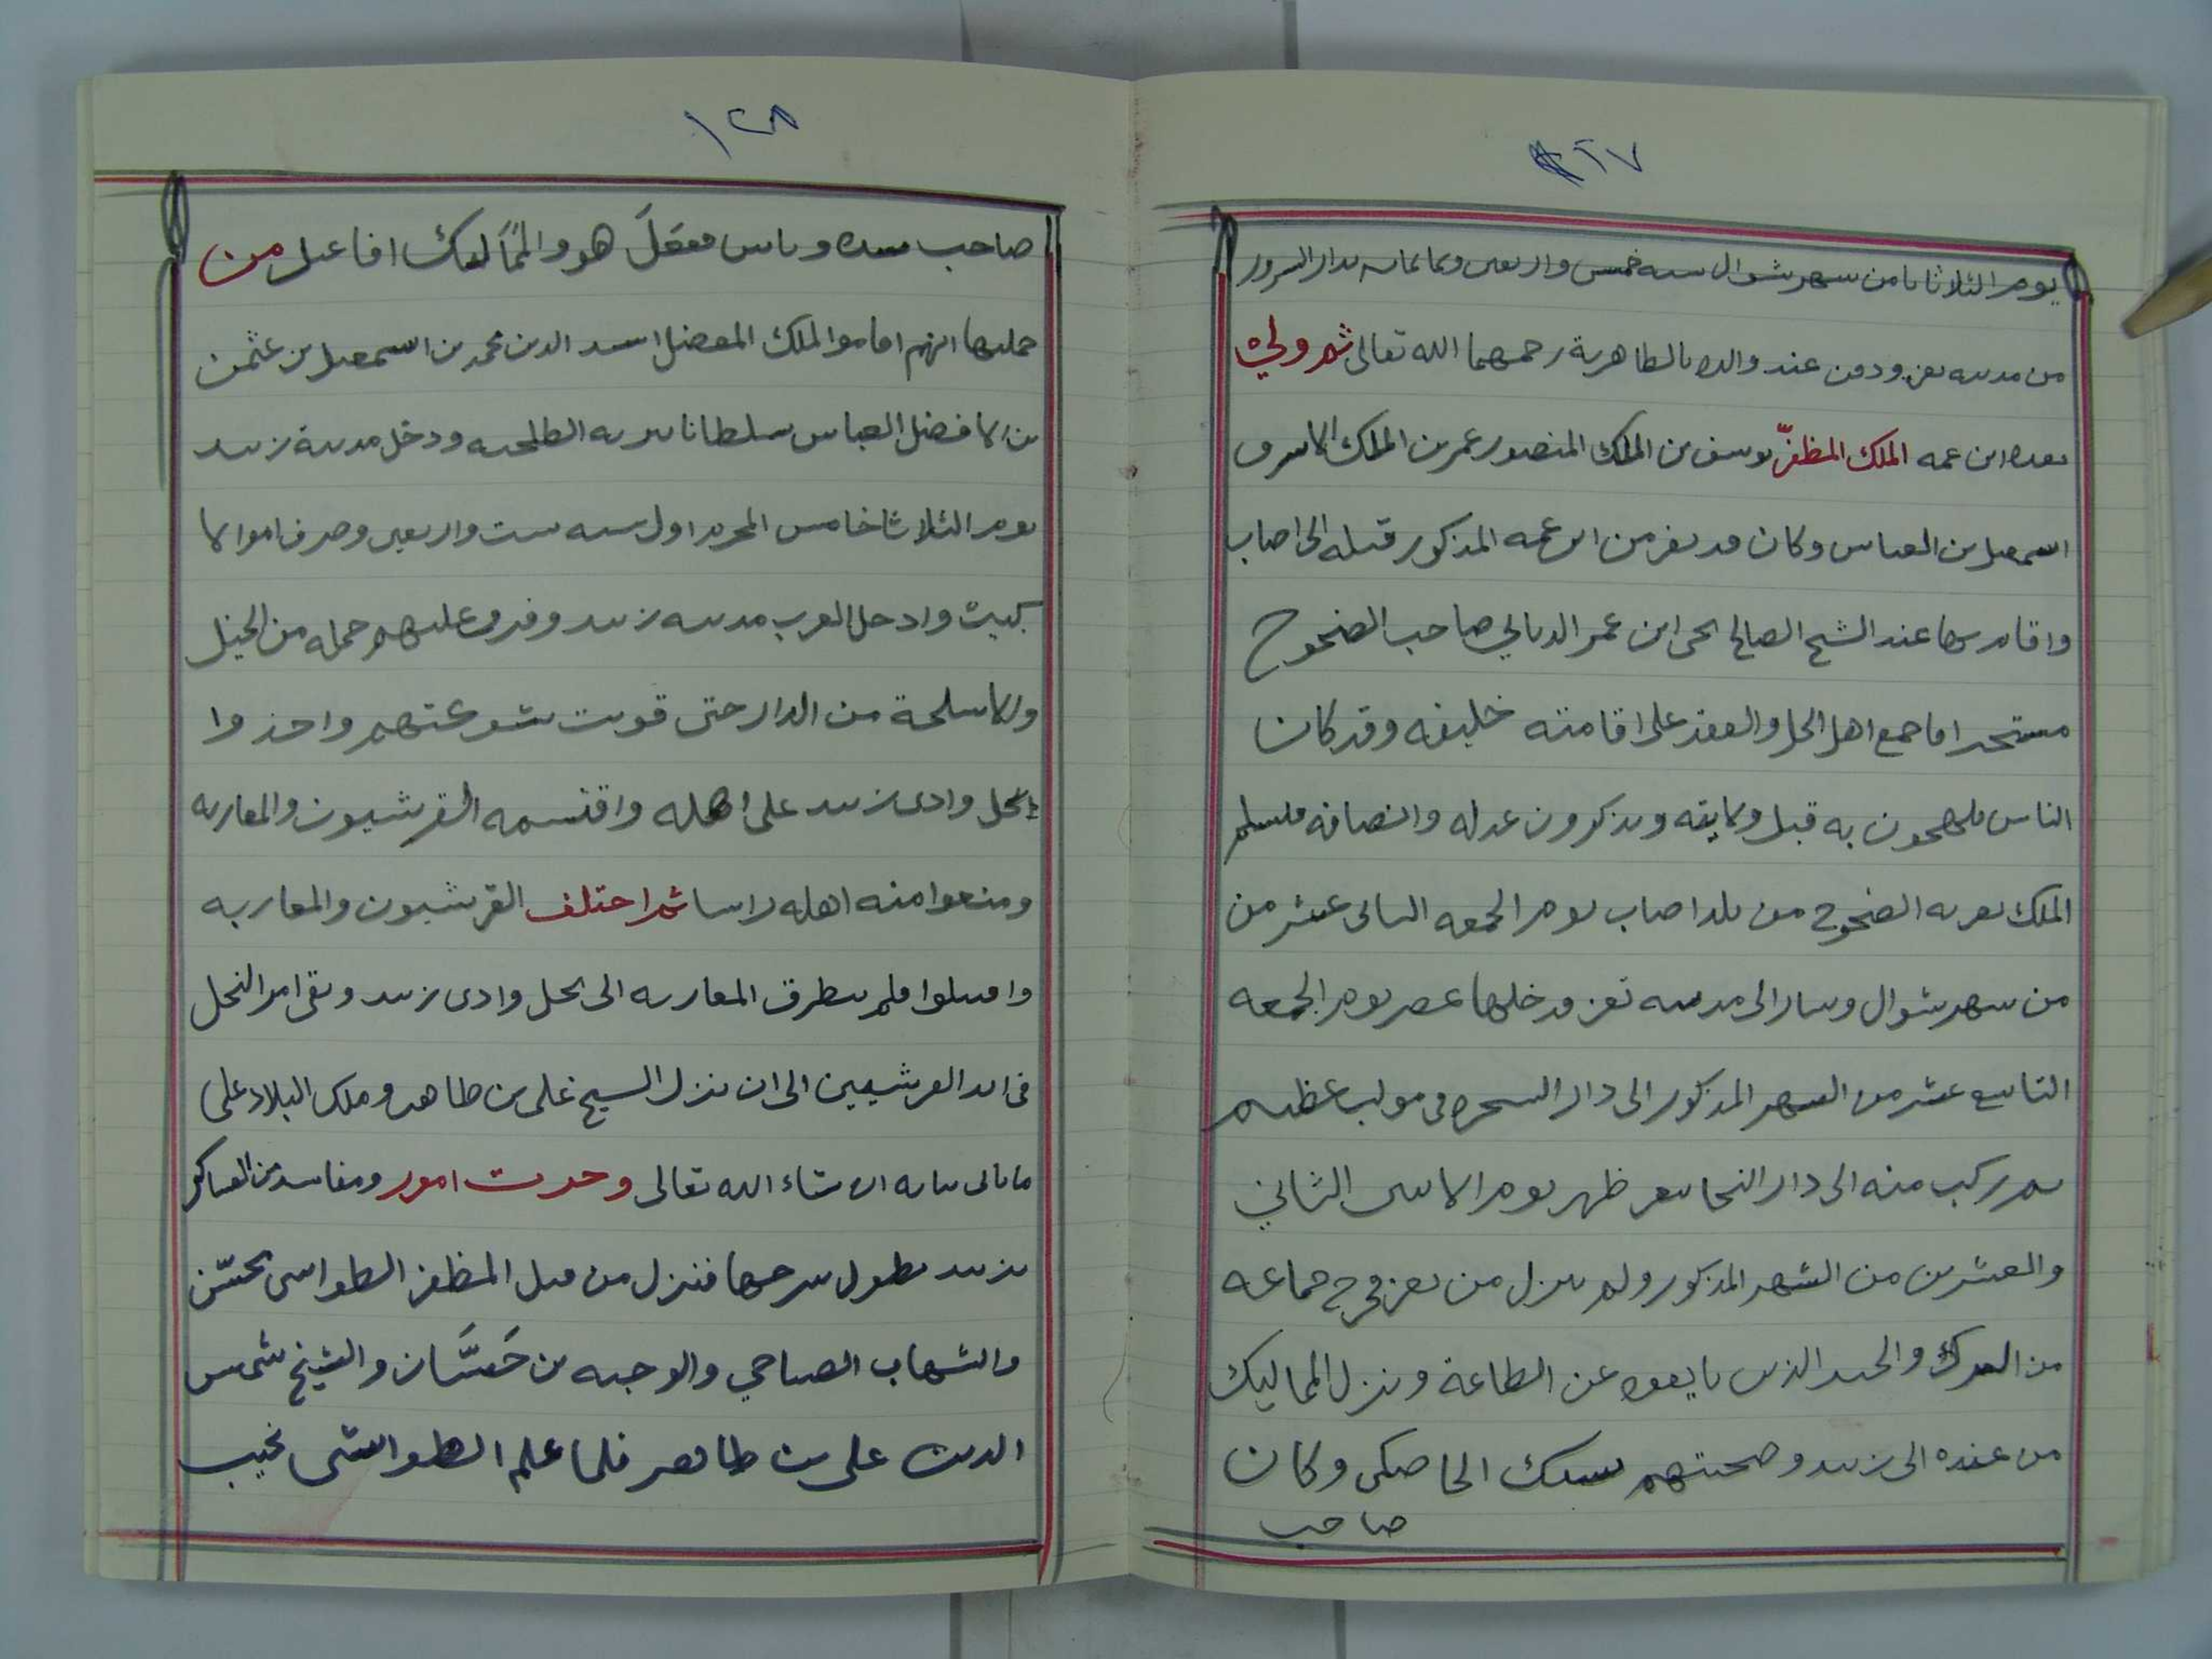 ١٢٧
يوم الثلاثا ثامن شهر شوال سنه خمس واربعين وثمانمانه بدار السرور
من مدينه تعز ودفن عند والده بالظاهرية رحمهما الله تعالى ثم ولي
بعده ابن عمه الملك المظفّر يوسف بن الملك المنصور عمر بن الملك الاشرف
اسمعيل بن العباس وكان قد نفر من ابن عمه المذكور قبله الى اصاب
واقام بها عند الشيخ الصالح ابن عمر صاحب الضنجوح
اهل الحل والعقد على اقامته خليفه وقد كان
الناس يلهجون به قبل ولايته ويذكرون عدله وانصافه
الملك بقريه الضنجوج من بلد اصاب يوم الجمعه الثانى عشر من
من شهر شوال وسار الى مدينه تعز ودخلها عصر يوم الجمعه
التاسع عشر من الشهر المذكور الى دار الشجره فى موكب عظيم
ثم ركب منه الى دار ظهر يوم الاثنين الثاني
والعشرين من الشهر المذكور ولم ينزل من تعز فخرج جماعه
من الترك والجند الذين عن الطاعة ونزل المماليك
من عنده الى زبيد وصحبتهم الخاصكى وكان
صاحب
١٢٨
صاحب هو والمماليك افاعيل من
جملتها انهم اقاموا الملك المفضل اسد الدين محمد بن اسمعيل بن عثمن
بن الافضل العباس سلطانا بقريه الطلحيه ودخل مدينة زبيد
يوم الثلاثا خامس المحرم اول سنه ست واربعين وصرف اموالا
وادخل العرب مدينه زبيد وفرق عليهم جمله من الخيل
والاسلحة من الدار حتى قويت شوكتهم واخذوا
نخل وادى زبيد على اهله واقتسمه القرشيون والمعازبه
ومنعوا منه اهله راسا ثم اختلف القرشيون والمعازبه
واقتتلوا فلم يتطرق المعازبه الى نخل وادى زبيد وبقى امر النخل
فى ايد القرشيين الى ان نزل الشيخ على بن طاهر وملك البلاد على
ما ياتى بيانه ان شاء الله تعالى وجرت امور ومفاسد من العساكر
بزبيد يطول شرحها فنزل من قبل المظفر الطواشى
والشهاب الصباحي والوجيه بن حَسَّان والشيخ شمس
الدين على بن طاهر فلما علم الطواشى